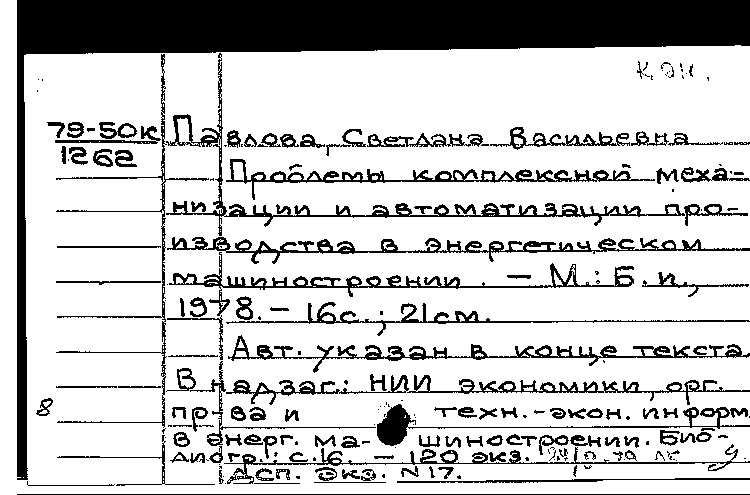 К.ЭИ.
79-50к
1262
Павлова, Светлана Васильевна
Проблемы комплексной меха-
низации и автоматизации про-
изводства в энергетическом
машиностроении. - М.: Б. и.,
1978. - 16с.; 21см.
Авт. указан в конце текста.
В надзаг.: НИИ экономики, орг.
8
пр-ва и техн.-экон. информ.
в энерг. ма- шиностроении. Биб-
лиогр.: с.16. - 120 экз.
Дсп. Экз. N17.